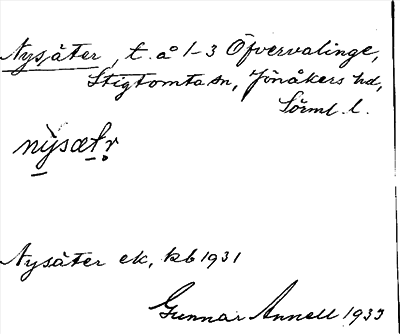 Nysäter, t. å 1-3 Öfvervalinge,
Stigtomta sn, Jönåkers hd,
Sörml. l.
nỳsæt̥r
Nysäter ek, kb 1931
Gunnar Annell 1933